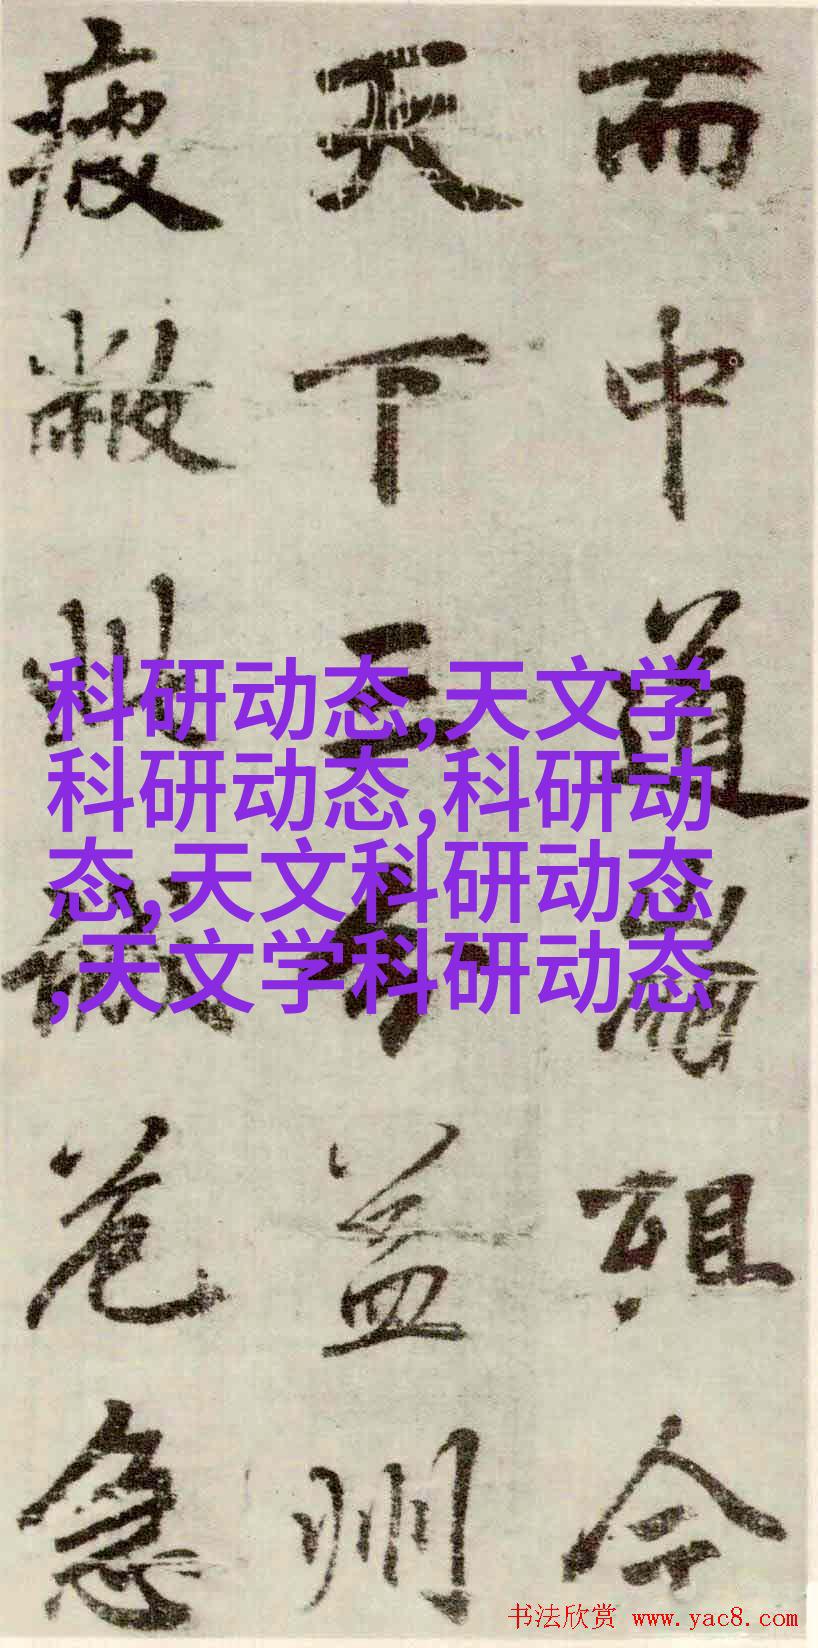 而中道崩殂今
天下三分益州
疲敝此誠危急
科研动态,天文学
科研动态,科研动
态,天文科研动态
,天文学科研动态
书法欣赏 www.yac8.com